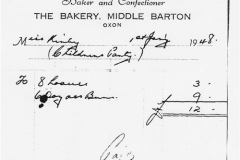 Baker and Confectioner
THE BAKERY, MIDDLE BARTON
OXON
Miss Kirby 1948.
(Childrens Party)
To 8 Loaves 3 -
6 Dozen Buns 9 -
£ 12 -
Paid